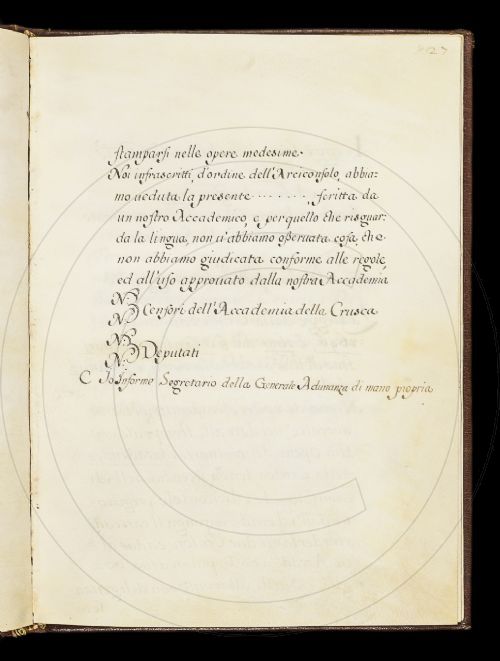 27
stamparsi nelle opere medesime.
Noi infrascritti, d'ordine dell'Arciconsolo, abbia:
mo ueduta la presente ........ scritta da
un nostro Accademico, e per quello che risguar:
da la lingua, non u'abbiamo osseruata cosa, che
non abbiamo giudicata conforme alle regole,
ed all'uso approuato dalla nostra Accademia
N.
N. Censori dell'Accademia della Crusca
N.
N. Deputati
C Io Informe Segretario della Generale Adunanza di mano propria